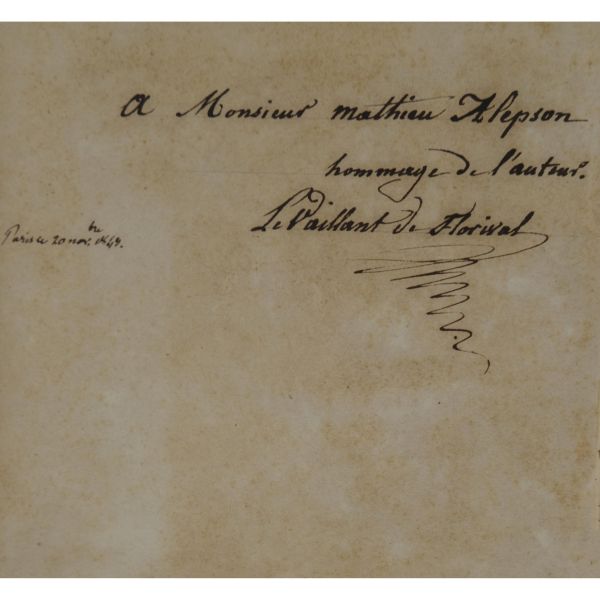 A Monsieur mathieu Alepson
hommage de l'auteur.
Le Vaillant de Florival
Paris ce 20 nov.bre 1849.